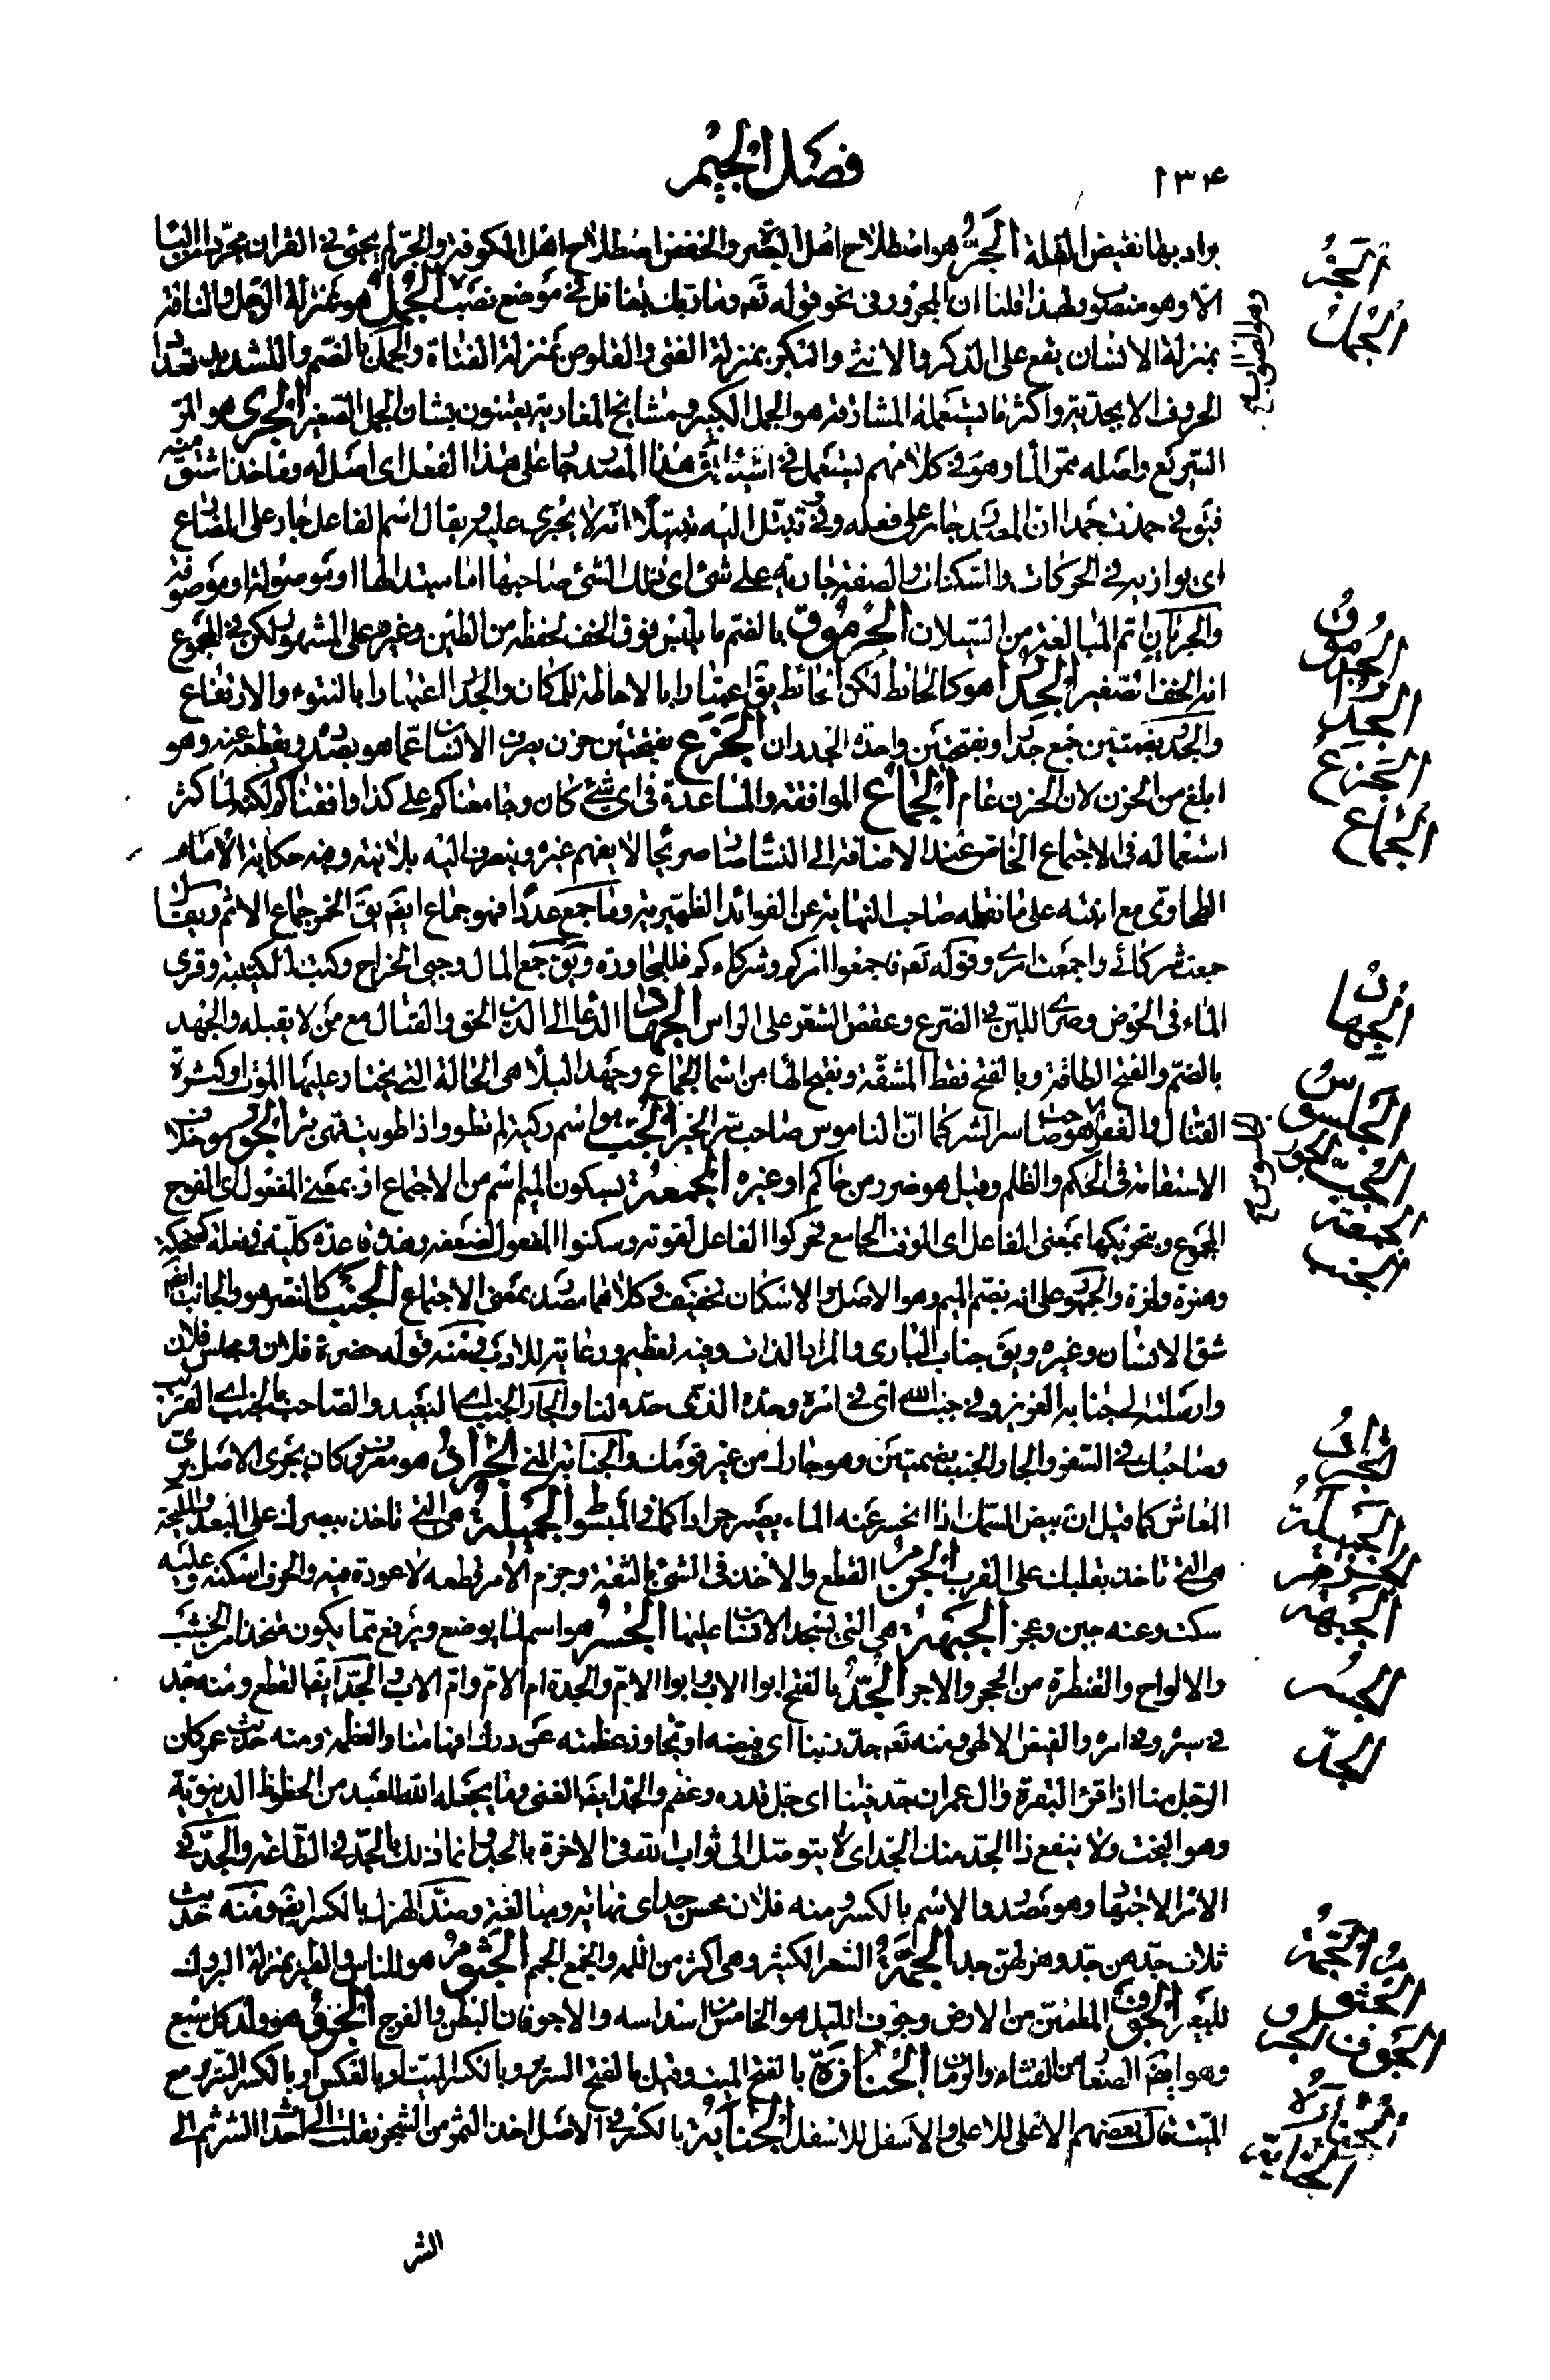 ١٣٤
فصل الجيم
يراد بها نقيض القلة الجر هو اصطلاح اهل البصرة والخفض اصطلاح اهل الكوفة والجر لم يجئ في القران مجردا من الباء
الا وهو منصوب ولهذا قلنا ان المجرور في نحو قوله تعم وما ربك بغافل في موضع نصب الجمل هو بمنزلة الرجل والناقة
بمنزلة الانسان يقع على الذكر والانثى والبكر بمنزلة الفتى والقلوص بمنزلة الفتاة والجمل بالضم والتشديد تعداد
الحروف الابجدية واكثر ما يستعمله المشارقة هو الجمل الكبير ومشايخ المغاربة يعتنون بشان الجمل الصغير الجرى هو المر
السريع واصله ممر الماء وهو في كلامهم يستعمل في اشياء يق هذا المصدر جار على هذا الفعل اى اصل له وماخذ اشتق منه
فيق في حمدت حمدا ان المصدر جار على فعله وفي تبتل اليه تبتيلا انه لا يجرى عليه ويقال اسم الفاعل جار على المضارع
اى يوازيه في الحركات والسكنات والصفة جارية على شئ اى ذلك الشئ صاحبها اما مبتدا لها او موصولة او موصوفة
والجريان اتم المبالغة من السيلان الجرموق بالضم ما يلبس فوق الخف لحفظه من الطين وغيره على المشهور لكن في المجموع
انه الخف الصغير الجدار هو كالحائط لكن الحائط يق اعتبارا بالاحاطة للمكان والجدار اعتبارا بالنتوء والارتفاع
والجدر بضمتين جمع جدار وبفتحتين واحدة الجدران الجزع بفتحتين حزن يصرف الانسان عما هو بصدده ويقطعه عنه وهو
ابلغ من الحزن لان الحزن عام الجماع الموافقة والمساعدة في اى شئ كان وجامعناكم على كذا وافقناكم لكنه لما كثر
استعماله في الاجتماع الخاص عند الاضافة الى النساء صار صريحا لا يفهم غيره وينصرف اليه بلا نية وفيه حكاية الامام
الطحاوى مع ابنته على ما نقله صاحب النهاية عن الفوائد الظهيرية وما جمع عددا فهو جماع ايضا يق الخمر جماع الاثم ويقال
جمعت شركائى واجمعت امرى وقوله تعم فاجمعوا امركم وشركاءكم فللمجاورة ويق جمع المال وجبى الخراج وكتب الكتيبة وقرى
الماء في الحوض وصرى اللبن في الضرع وعقص الشعر على الراس الجهاد الدعاء الى الدين الحق والقتال مع من لا يقبله والجهد
بالضم والفتح الطاقة وبالفتح فقط المشقة وبفتح الهاء من اسماء الجماع وجهد البلاء هى الحالة التى يختار عليها الموت او كثرة
القتال والفقر هو صاحب سر الشر كما ان الناموس صاحب سر الخير الجب هو اسم ركية لم تطو واذا طويت فهى بئر الجور هو خلاف
الاستقامة في الحكم والظلم وقيل هو ضرر من حاكم او غيره الجمعة بسكون الميم اسم من الاجتماع او بمعنى المفعول اى الفوج
المجموع وبتحريكها بمعنى الفاعل اى الوقت الجامع فحركوا الفاعل لقوته وسكنوا المفعول لضعفه وهذه قاعدة كلية في فعلة كضحكة
وهمزة ولمزة والجمهور على انه بضم الميم وهو الاصل والاسكان تخفيف وكلاهما مصدر بمعنى الاجتماع الجنب كالقصر هو والجانب ايضا
شق الانسان وغيره ويق جناب البارى والمراد الذات وفيه تعظيم ورعاية للادب ومنه قوله حضرة فلان ومجلس فلان
وارسلته الى جنابه العزيز وفي جنب الله اى في امره وحده الذى حده لنا والجار الجنب اى البعيد والصاحب بالجنب اى القريب
وصاحبك في السفر والجار الجنب بضمتين وهو جارك من غير قومك والجنابة المنى الجراد هو معروف كان بحرى الاصل برى
المعاش كما قيل ان بيض السمك اذا انحسر عنه الماء يصير جرادا كما في المبسوط الجميلة هى التى تاخذ ببصرك على البعد والمليحة
هى التى تاخذ بقلبك على القرب الجزم القطع والاخذ في الشئ بالثقة وجزم الامر قطعه لا عودة فيه والحرف اسكنه وعليه
سكت وعنه جبن وعجز الجبهة هى التى يسجد الانسان عليها الجسر هو اسم لما يوضع ويرفع مما يكون متخذا من الخشب
والالواح والقنطرة من الحجر والاجر الجد بالفتح ابو الاب وابو الام والجدة ام الام وام الاب والجد ايضا القطع ومنه جد
في سيره وفي امره والفيض الالهى ومنه تعم جد ربنا اى فيضه او تجاوز عظمته عن درك افهامنا والعظمة ومنه حديث عمر كان
الرجل منا اذا قرء البقرة وال عمران جد فينا اى جل قدره وعظم والجد ايضا الغنى وما يجعله الله للعبد من الحظوظ الدنيوية
وهو البخت ولا ينفع ذا الجد منك الجد اى لا يتوصل الى ثواب الله في الاخرة بالجد وانما ذلك بالجد في الطاعة والجد في
الامر الاجتهاد وهو مصدر والاسم بالكسر ومنه فلان محسن جدا اى نهاية ومبالغة وضد الهزل بالكسر ايضا ومنه حديث
ثلاث جدهن جد وهزلهن جد الجمة الشعر الكثير وهى اكثر من اللمة والجمع الجمم الجثوم هو للناس والطير بمنزلة البروك
للبعير الجوف المطمئن من الارض وجوف الليل هو الخامس من اسداسه والاجوفان البطن والفرج الجرو هو ولد كل سبع
وهو ايضا الصغار من القثاء والرمان الجنازة بالفتح الميت وقيل بالفتح السرير وبالكسر الميت او بالعكس او بالكسر السرير مع
الميت قال بعضهم الاعلى للاعلى والاسفل للاسفل الجناية بالكسر في الاصل اخذ الثمر من الشجر نقلت الى احداث الشر ثم الى
الشر
الجر
الجمل
وهو الصواب صح
الجرموق
الجدار
الجزع
الجماع
الجهاد
الجاسوس
الجب الجور
الجمعة
الجنب
الجراد
الجميلة
الجزم
الجبهة
الجسر
الجد
الجمة
الجثوم
الجوف الجرو
الجنازة
الجناية